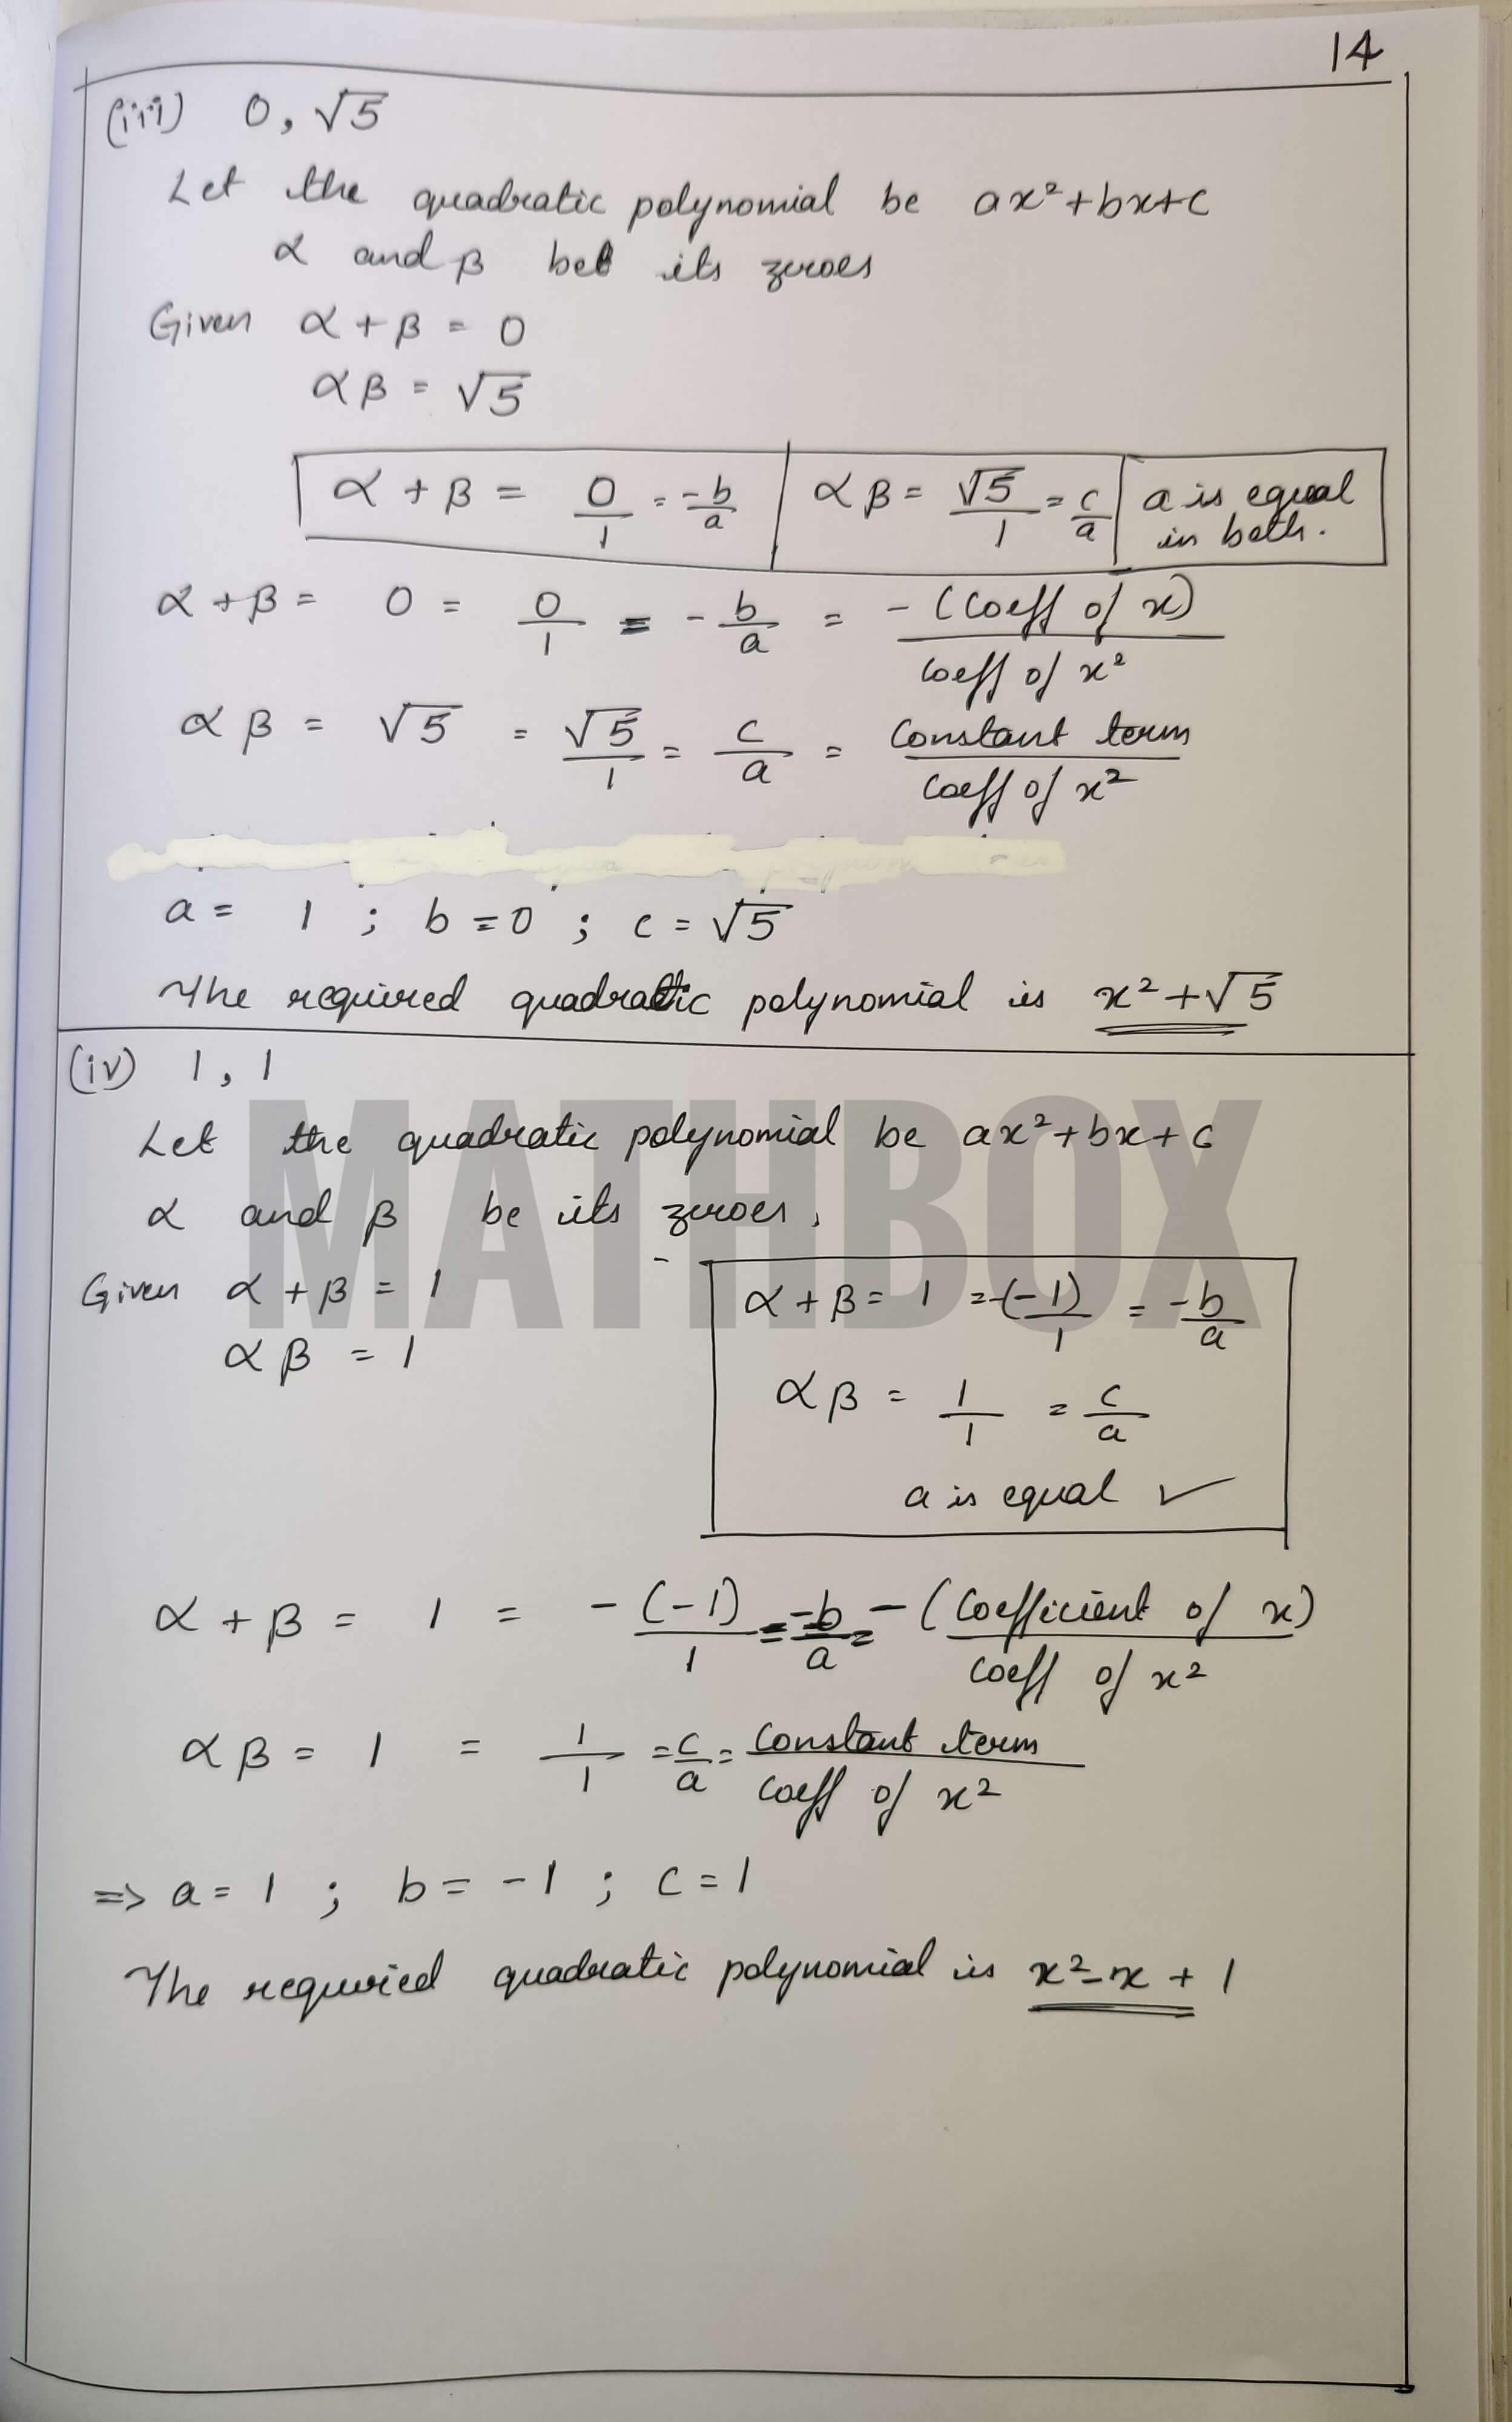 14
(iii) 0, √5
Let the quadratic polynomial be ax²+bx+c
α and β be its zeroes
Given α + β = 0
αβ = √5
α + β = 0/1 = -b/a | αβ = √5/1 = c/a | a is equal in both.
α + β = 0 = 0/1 = -b/a = -(Coeff of x)/Coeff of x²
αβ = √5 = √5/1 = c/a = Constant term/Coeff of x²
a = 1 ; b = 0 ; c = √5
The required quadratic polynomial is x² + √5
(iv) 1, 1
MATHBOX
Let the quadratic polynomial be ax²+bx+c
α and β be its zeroes,
Given α + β = 1
αβ = 1
α + β = 1 = -(-1)/1 = -b/a
αβ = 1/1 = c/a
a is equal ✓
α + β = 1 = -(-1)/1 = -b/a = -(Coefficient of x)/Coeff of x²
αβ = 1 = 1/1 = c/a = Constant term/Coeff of x²
=> a = 1 ; b = -1 ; c = 1
The requried quadratic polynomial is x² - x + 1